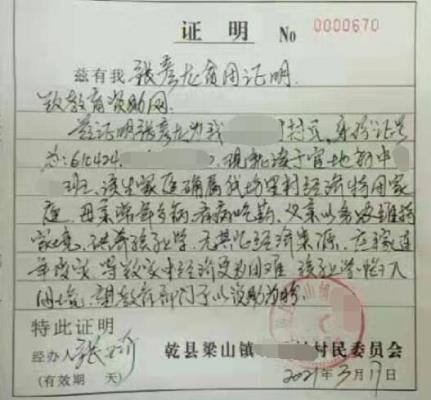 证明 No 0000670
兹有我 张彦龙贫困证明.
致教育资助网:
兹证明张彦龙为我 村民, 身份证号
为:61c424. , 现就读于官地初中
班, 该生家庭确属我坊里村经济特困家
庭. 母亲常年多病, 看病吃药, 父亲以务农维持
家境, 供养孩子上学, 无其他经济来源, 在家连
年 , 导致家中经济更为困难, 孩子上学 入
困境, 望教育部门予以资助为盼.
特此证明
经办人 张 乾县梁山镇 村民委员会
(有效期 天) 2021年3月17日